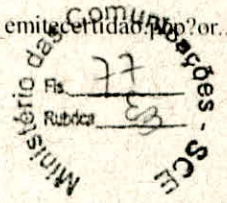 emitecertidao.php?or...
Ministério das Comunicações - SCE
Fls. 77
Rubrica